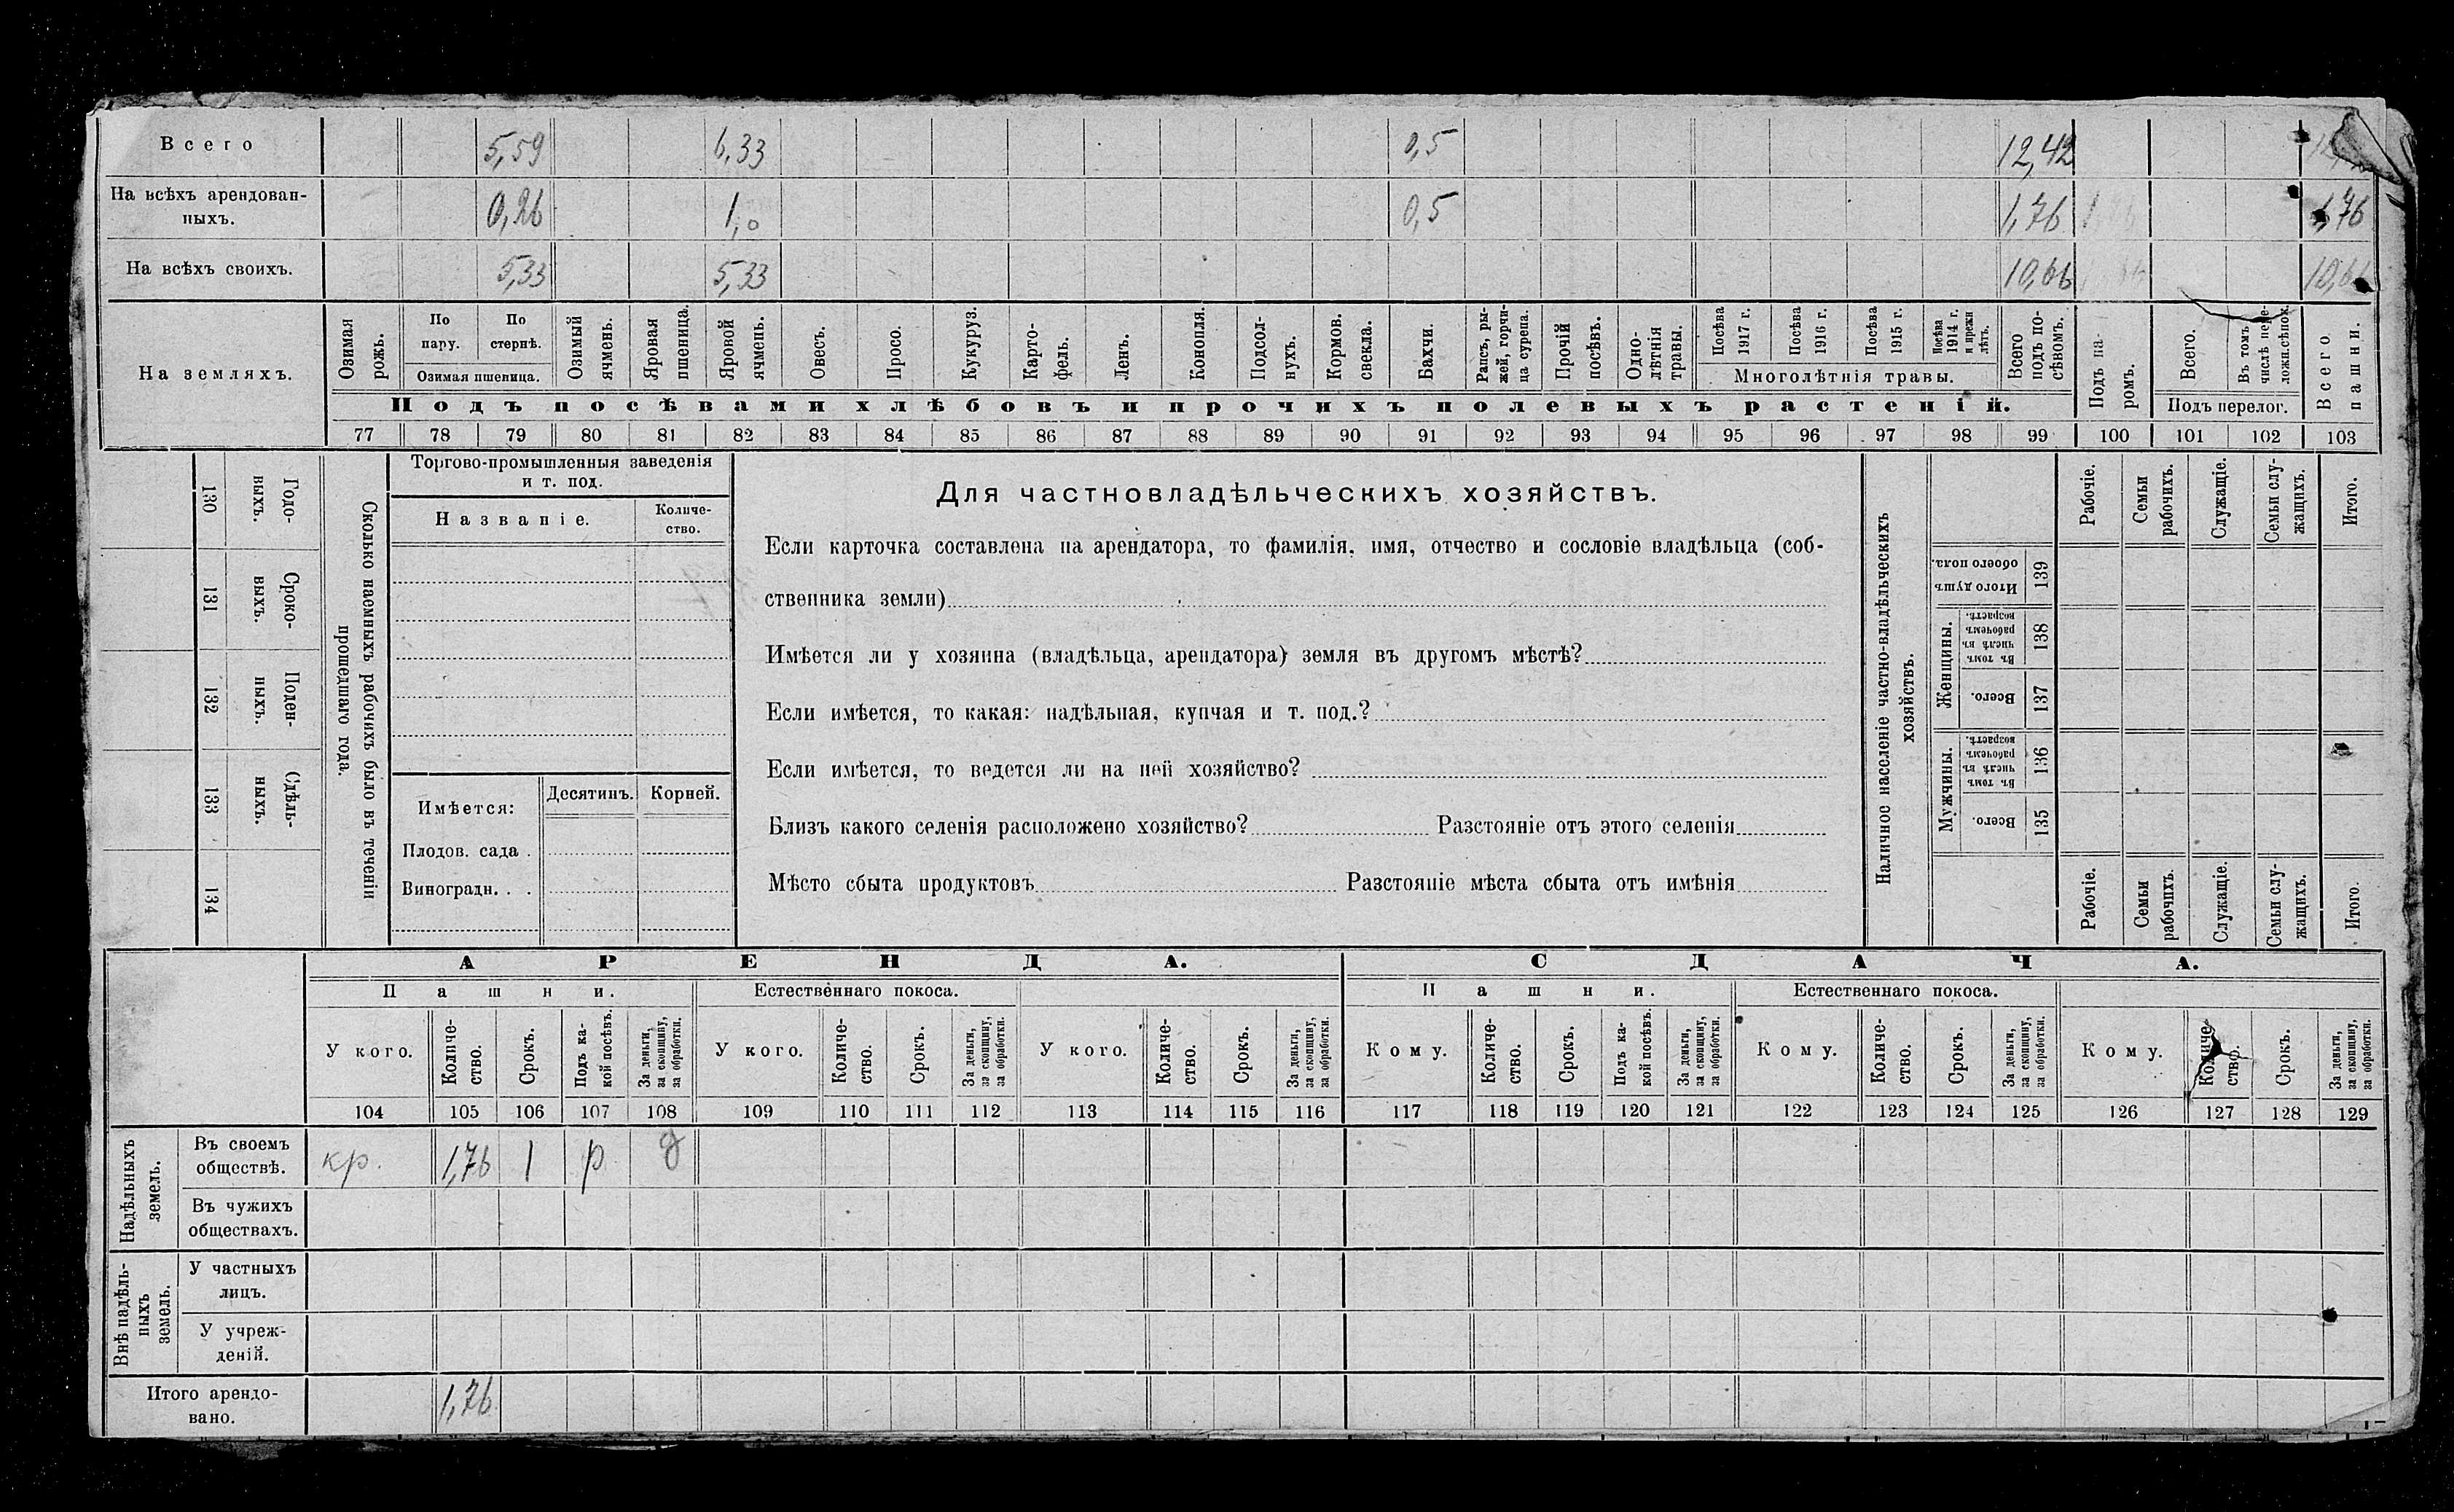 Всего 5,59 6,33 0,5 12,42
На всѣхъ арендован-
ныхъ. 0,26 1,0 0,5 1,76 1,76
На всѣхъ своихъ. 5,33 5,33 10,66 10,66
На земляхъ.
Озимая рожь.
По пару.
По стернѣ.
Озимая пшеница.
Озимый ячмень.
Яровая пшеница.
Яровой ячмень.
Овесъ.
Просо.
Кукуруз.
Карто-
фель.
Ленъ.
Конопля.
Подсол-
нухъ.
Кормов. свекла.
Бахчи.
Рапсъ, ры-
жей, горчи-
ца сурепа.
Прочій посѣвъ.
Одно-
лѣтнія травы.
Посѣва 1917 г.
Посѣва 1916 г.
Посѣва 1915 г.
Посѣва 1914 г. и прежн лѣтъ.
Многолѣтнія травы.
Всего подъ по-
сѣвомъ.
Подъ па-
ромъ.
Всего.
Въ томъ числѣ пере-
ложн.сѣнок.
Подъ перелог.
Всего пашни.
Подъ посѣвами хлѣбовъ и прочихъ полевыхъ растеній.
77 78 79 80 81 82 83 84 85 86 87 88 89 90 91 92 93 94 95 96 97 98 99 100 101 102 103
Сколько наемныхъ рабочихъ было въ теченіи
прошедшаго года.
Годо-
выхъ.
130
Сроко-
выхъ.
131
Поден-
ныхъ.
132
Сдѣль-
ныхъ.
133
134
Торгово-промышленныя заведенія
и т. под.
Названіе.
Количе-
ство.
Имѣется:
Десятинъ.
Корней.
Плодов. сада .
Виноградн. . .
Для частновладѣльческихъ хозяйствъ.
Если карточка составлена на арендатора, то фамилія, имя, отчество и сословіе владѣльца (соб-
ственника земли)
Имѣется ли у хозяина (владѣльца, арендатора) земля въ другомъ мѣстѣ?
Если имѣется, то какая: надѣльная, купчая и т. под.?
Если имѣется, то ведется ли на ней хозяйство?
Близъ какого селенія расположено хозяйство? Разстояніе отъ этого селенія
Мѣсто сбыта продуктовъ Разстояніе мѣста сбыта отъ имѣнія
Наличное населеніе частно-владѣльческихъ
хозяйствъ.
Рабочіе.
Семьи рабочихъ.
Служащіе.
Семьи слу-
жащихъ.
Итого.
Итого душъ обоего пола.
139
Женщины.
Въ томъ числѣ въ рабочемъ возрастѣ.
138
Всего.
137
Мужчины.
Въ томъ числѣ въ рабочемъ возрастѣ.
136
Всего.
135
Рабочіе.
Семьи рабочихъ.
Служащіе.
Семьи слу-
жащихъ.
Итого.
АРЕНДА. СДАЧА.
Пашни. Естественнаго покоса. Пашни. Естественнаго покоса.
У кого.
Количе-
ство.
Срокъ.
Подъ ка-
кой посѣвъ.
За деньги,
за скопщину,
за обработки.
У кого.
Количе-
ство.
Срокъ.
За деньги,
за скопщину,
за обработки.
У кого.
Количе-
ство.
Срокъ.
За деньги,
за скопщину,
за обработки.
Кому.
Количе-
ство.
Срокъ.
Подъ ка-
кой посѣвъ.
За деньги,
за скопщину,
за обработки.
Кому.
Количе-
ство.
Срокъ.
За деньги,
за скопщину,
за обработки.
Кому.
Количе-
ство.
Срокъ.
За деньги,
за скопщину,
за обработки.
104 105 106 107 108 109 110 111 112 113 114 115 116 117 118 119 120 121 122 123 124 125 126 127 128 129
Надѣльныхъ
земель.
Въ своемъ
обществѣ. кр. 1,76 1 р д
Въ чужихъ
обществахъ.
Внѣ надѣль-
ныхъ
земель.
У частныхъ
лицъ.
У учреж-
деній.
Итого арендо-
вано. 1,76